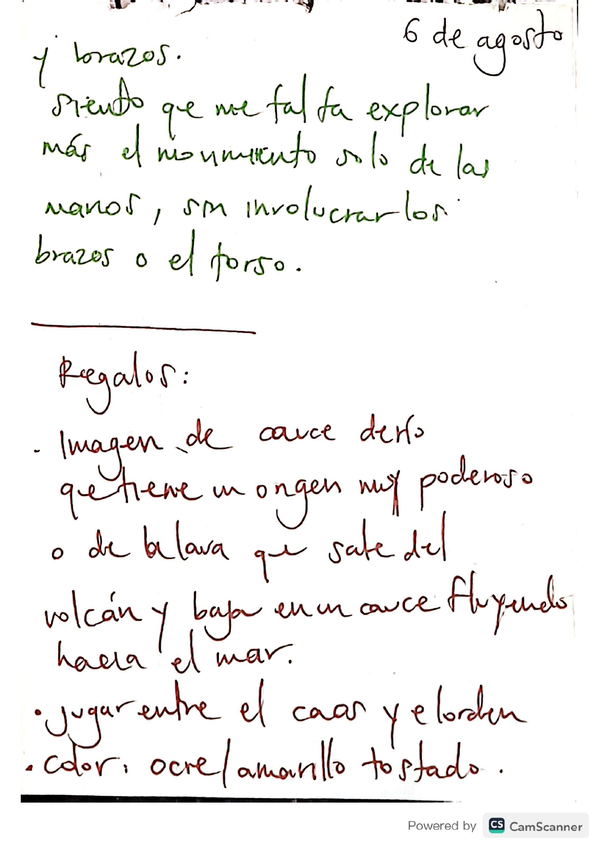 6 de agosto
y brazos.
siento que me falta explorar
más el movimiento solo de las
manos, sin involucrar los
brazos o el torso.
Regalos:
. Imagen de cauce de río
que tiene un origen muy poderoso
o de la lava que sale del
volcán y baja en un cauce fluyendo
hacia el mar.
. Jugar entre el caos y el orden
. color: ocre/amarillo tostado.
Powered by CS CamScanner